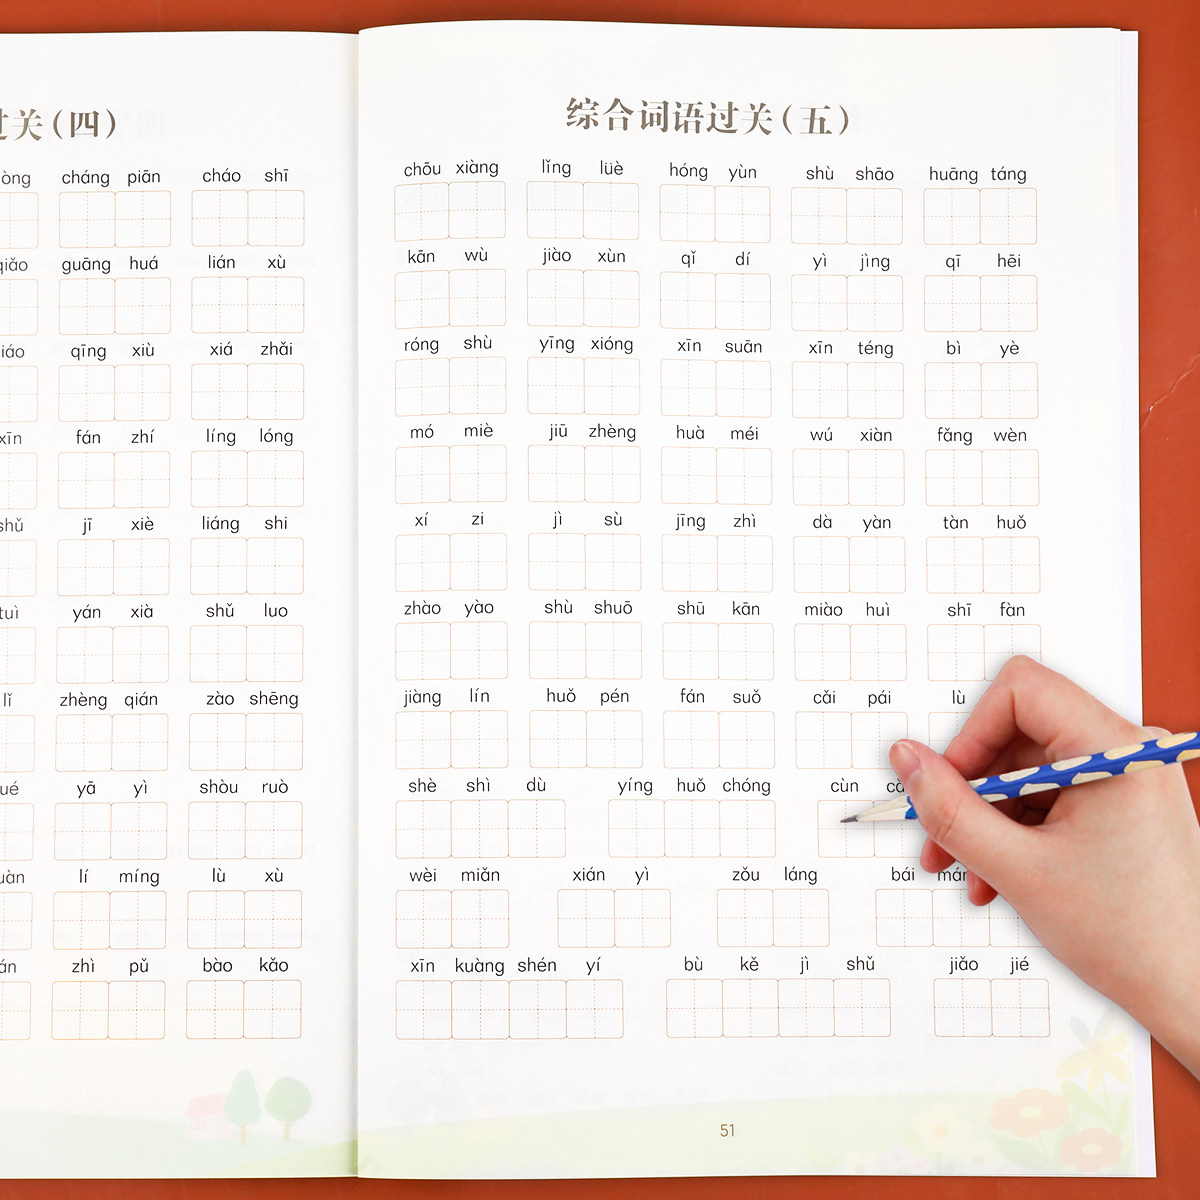 过关（四）
òng cháng piān cháo shī
qiǎo guāng huá lián xù
iáo qīng xiù xiá zhǎi
xīn fán zhí líng lóng
shǔ jī xiè liáng shi
tuì yán xià shǔ luo
lǐ zhèng qián zào shēng
ué yā yì shòu ruò
uàn lí míng lù xù
án zhì pǔ bào kǎo
综合词语过关（五）
chōu xiàng lǐng lüè hóng yùn shù shāo huāng táng
kān wù jiào xùn qǐ dí yì jìng qī hēi
róng shù yīng xióng xīn suān xīn téng bì yè
mó miè jiū zhèng huà méi wú xiàn fǎng wèn
xí zi jì sù jīng zhì dà yàn tàn huǒ
zhào yào shù shuō shū kān miào huì shī fàn
jiàng lín huǒ pén fán suǒ cǎi pái lù
shè shì dù yíng huǒ chóng cùn cǎ
wèi miǎn xián yì zǒu láng bái mán
xīn kuàng shén yí bù kě jì shǔ jiǎo jié
51